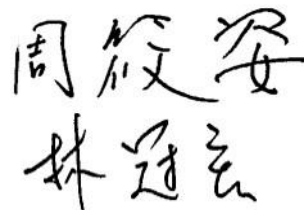 周筱姿
林冠宏